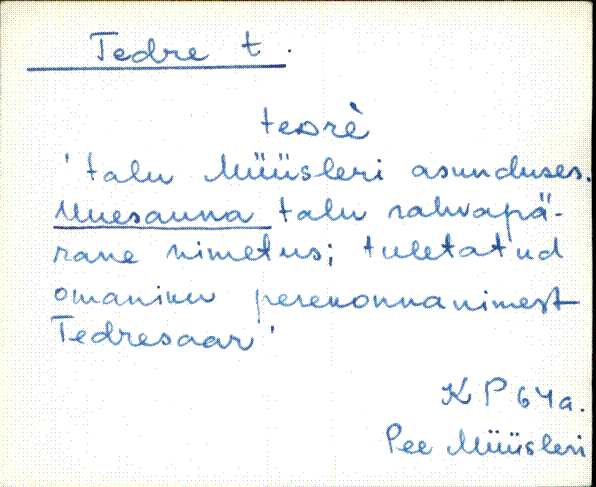 Tedre t.
teᴅrè
'talu Müüsleri asunduses.
Uuesauna talu rahvapä-
rane nimetus; tuletatud
omaniku perekonnanimest
Tedresaar'
KP 64a.
Pee Müüsleri